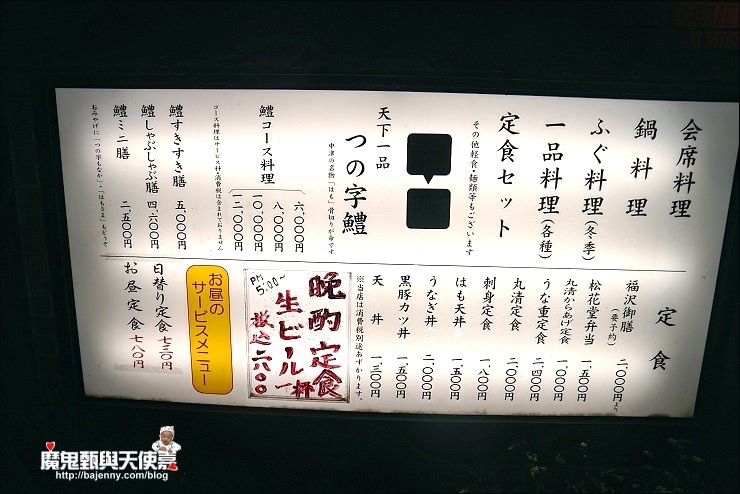 会席料理
鍋料理
ふぐ料理(冬季)
一品料理(各種)
定食セット
その他軽食・麺類等もございます
天下一品
つの字鱧
中津の名物「はも」骨切りが命です
鱧コース料理
六、〇〇〇円
八、〇〇〇円
一〇、〇〇〇円
一二、〇〇〇円
コース料理はサービス料・消費税は含まれておりません
鱧すきすき膳 五、〇〇〇円
鱧しゃぶしゃぶ膳 四、六〇〇円
鱧ミニ膳 二、五〇〇円
おみやげに「つの字もなか」・「はもざま」もどうぞ
定食
福沢御膳(要予約) 二、〇〇〇円より
松花堂弁当 一、五〇〇円
丸清からあげ定食 一、〇〇〇円
うな重定食 二、四〇〇円
丸清定食 二、〇〇〇円
刺身定食 一、八〇〇円
はも天丼 一、五〇〇円
うなぎ丼 二、〇〇〇円
黒豚カツ丼 一、五〇〇円
天丼 一、三〇〇円
※当店は消費税別途あずかります。
晩酌定食
生ビール一杯
PM 5:00~
税込一六〇〇
お昼の
サービスメニュー
日替り定食 七三〇円
お昼定食 七八〇円
魔鬼甄與天使嘉
http://bajenny.com/blog